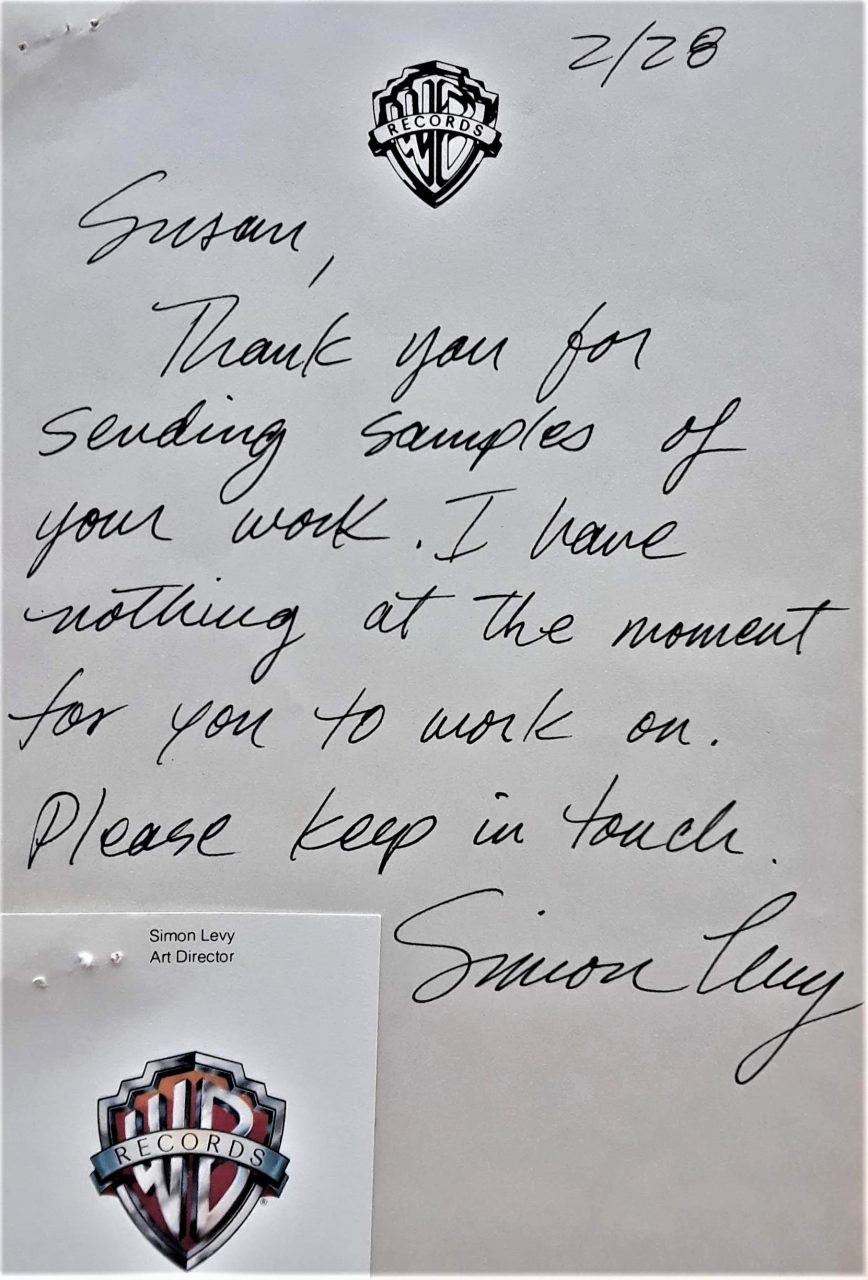 2/28
WB
RECORDS
Susan,
Thank you for
sending samples of
your work. I have
nothing at the moment
for you to work on.
Please keep in touch.
Simon Levy
Simon Levy
Art Director
WB
RECORDS
®